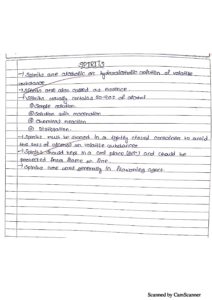 SPIRITS
→ Spirits are alcoholic or hydroalcoholic solution of volatile
substance.
→ Spirits are also called as essence.
→ Spirits usually contains 50-90% of alcohol
① Simple solution
② Solution with maceration
③ Chemical reaction
④ Distillation.
→ Spirits must be stored in a tightly closed container to avoid
the loss of alcohol or volatile substance.
→ Spirits should kept in a cool place and should be
protected from flame or fire.
→ Spirits are used generally in flavouring agent.
Scanned by CamScanner